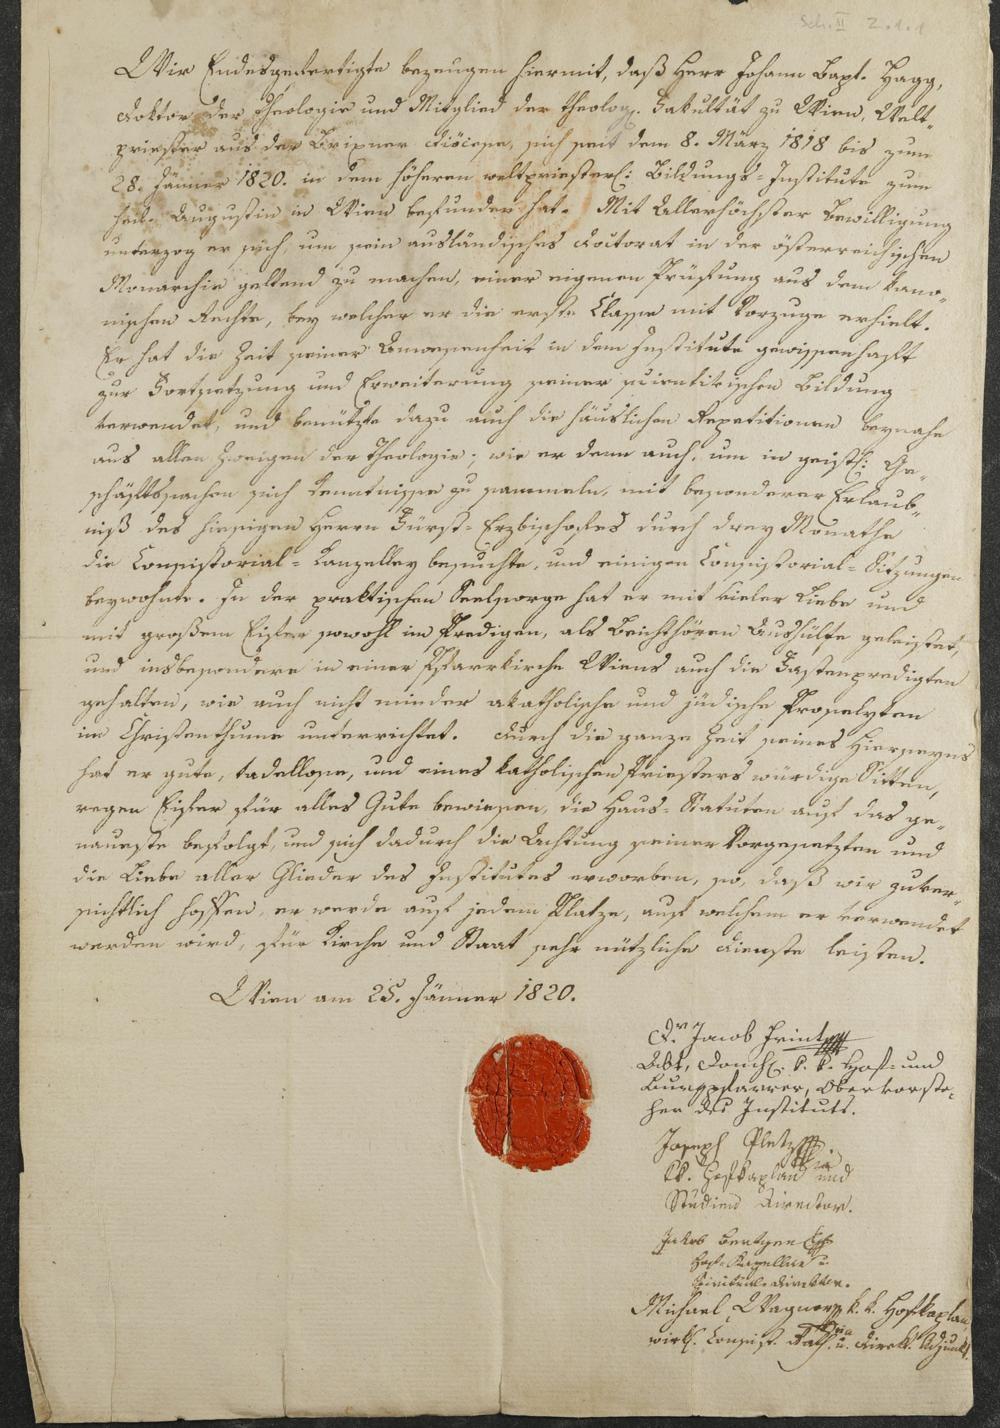 Sch. II 2.1.1
Wir Endesgefertigte bezeugen hiermit, daß Herr Johann Bapt. Hagg,
Doktor der Theologie und Mitglied der theolog. Fakultät zu Wien, Welt-
priester aus der Brixner Diöcese, sich seit dem 8. März 1818 bis zum
28. Jänner 1820. in dem höheren weltpriesterl: Bildungs-Institute zum
heil. Augustin in Wien befunden hat. Mit Allerhöchster Bewilligung
unterzog er sich, um sein ausländisches Doctorat in der österreichischen
Monarchie geltend zu machen, einer eigenen Prüfung aus dem kano-
nischen Rechte, bey welcher er die erste Classe mit Vorzuge erhielt.
Er hat die Zeit seiner Anwesenheit in dem Institute gewissenhaft
zur Fortsetzung und Erweiterung seiner scientifischen Bildung
verwendet, und benützte dazu auch die häuslichen Repetitionen beynahe
aus allen Zweigen der Theologie; wie er denn auch, um in geistl: Ge-
schäftssachen sich Kenntnisse zu sammeln, mit besonderer Erlaub-
niß des hiesigen Herrn Fürst-Erzbischofes durch drey Monathe
die Consistorial-Kanzelley besuchte, und einigen Consistorial-Sitzungen
beywohnte. In der praktischen Seelsorge hat er mit vieler Liebe und
mit großem Eifer sowohl im Predigen, als Beichthören Aushülfe geleistet,
und insbesondere in einer Pfarrkirche Wiens auch die Fastenpredigten
gehalten, wie auch nicht minder akatholische und jüdische Proselyten
im Christenthume unterrichtet. Durch die ganze Zeit seines Hierseyns
hat er gute, tadellose, und eines katholischen Priesters würdige Sitten,
regen Eifer für alles Gute bewiesen, die Haus-Statuten auf das ge-
naueste befolgt, und sich dadurch die Achtung seiner Vorgesetzten und
die Liebe aller Glieder des Institutes erworben, so, daß wir zuver-
sichtlich hoffen, er werde auf jedem Platze, auf welchem er verwendet
werden wird, für Kirche und Staat sehr nützliche Dienste leisten.
Wien am 25. Jänner 1820.
Dr. Jacob Frint
Abt, Domh. k. k. Hof- und
Burgpfarrer, Obervorste-
her des Instituts.
Joseph Pletz
kk. Hofkaplan und
Studien Director.
Jakob
Hof-Kapellan u.
Spiritual-Direktor.
Michael Wagner k. k. Hofkaplan,
wirkl. Consist. Rath u. Direkt. Adjunkt.